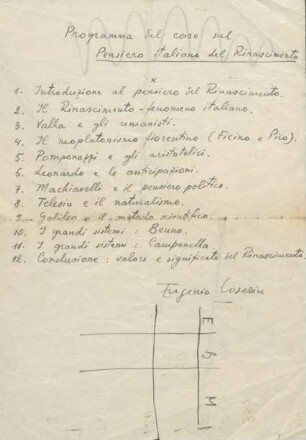 Programma del corso sul
Pensiero italiano del Rinascimento
x
1. Introduzione al pensiero del Rinascimento.
2. Il Rinascimento - fenomeno italiano.
3. Valla e gli umanisti.
4. Il neoplatonismo fiorentino (Ficino e Pico).
5. Pomponazzi e gli aristotelici.
6. Leonardo e le anticipazioni.
7. Machiavelli e il pensiero politico.
8. Telesio e il naturalismo.
9. Galileo e il metodo scientifico.
10. I grandi sistemi: Bruno.
11. I grandi sistemi: Campanella.
12. Conclusione: valore e significato del Rinascimento.
Eugenio Coseriu
E
M